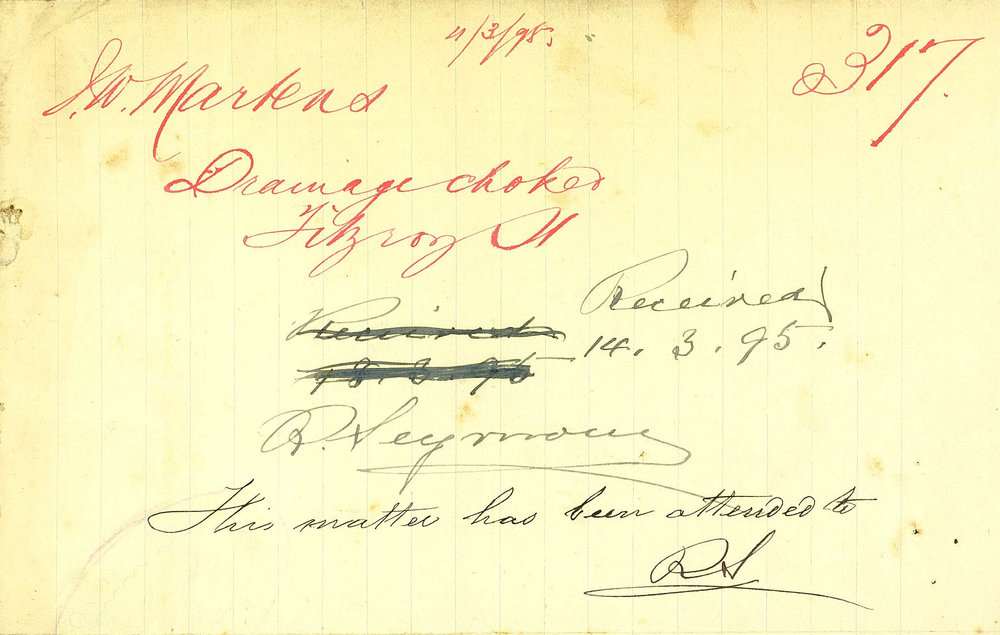 11/3/95.
317.
J. W. Martens
Drainage choked
Fitzroy St
Received
14. 3. 95.
Received
18. 3. 95
R. Seymour
This matter has been attended to
RS